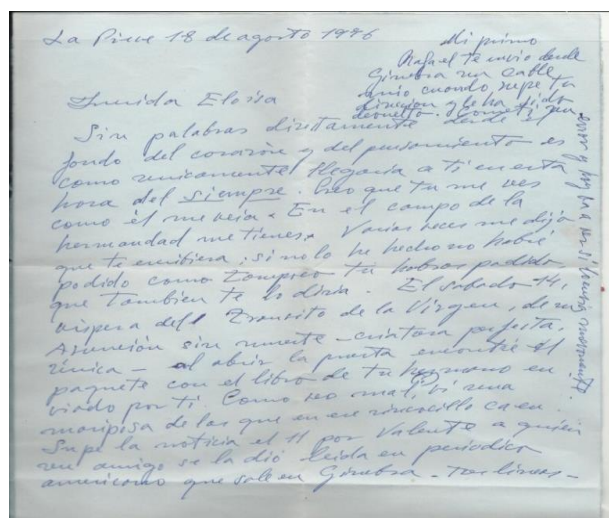 La Pièce 18 de agosto 1976
Mi primo
Rafael te envio desde
Ginebra un cable
mio cuando supe tu
direccion y le ha sido
devuelto. Cometi un
error y hoy va en si
Querida Eloisa
Sin palabras diretamente desde el
fondo del corazón y del pensamiento es
como unicamente llegaria a ti en esta
hora del siempre. Creo que tu me ves
como él me veia. En el campo de la
hermandad me tienes. Varias veces me dijo
que te escribiera, si no lo he hecho no habré
podido como tampoco tu habras podido
que tambien te lo diria. El sabado 14,
vispera del Transito de la Virgen, de su
Asunción sin muerte - criatura perfecta,
única - al abrir la puerta encontré el
paquete con el libro de tu hermano en
viado por ti. Como veo mal, vi una
mariposa de las que en ese rinconcillo caen.
Supe la noticia el 11 por Valente a quien
un amigo se la dió leida en periodico
americano que sale en Ginebra - Tres lineas -